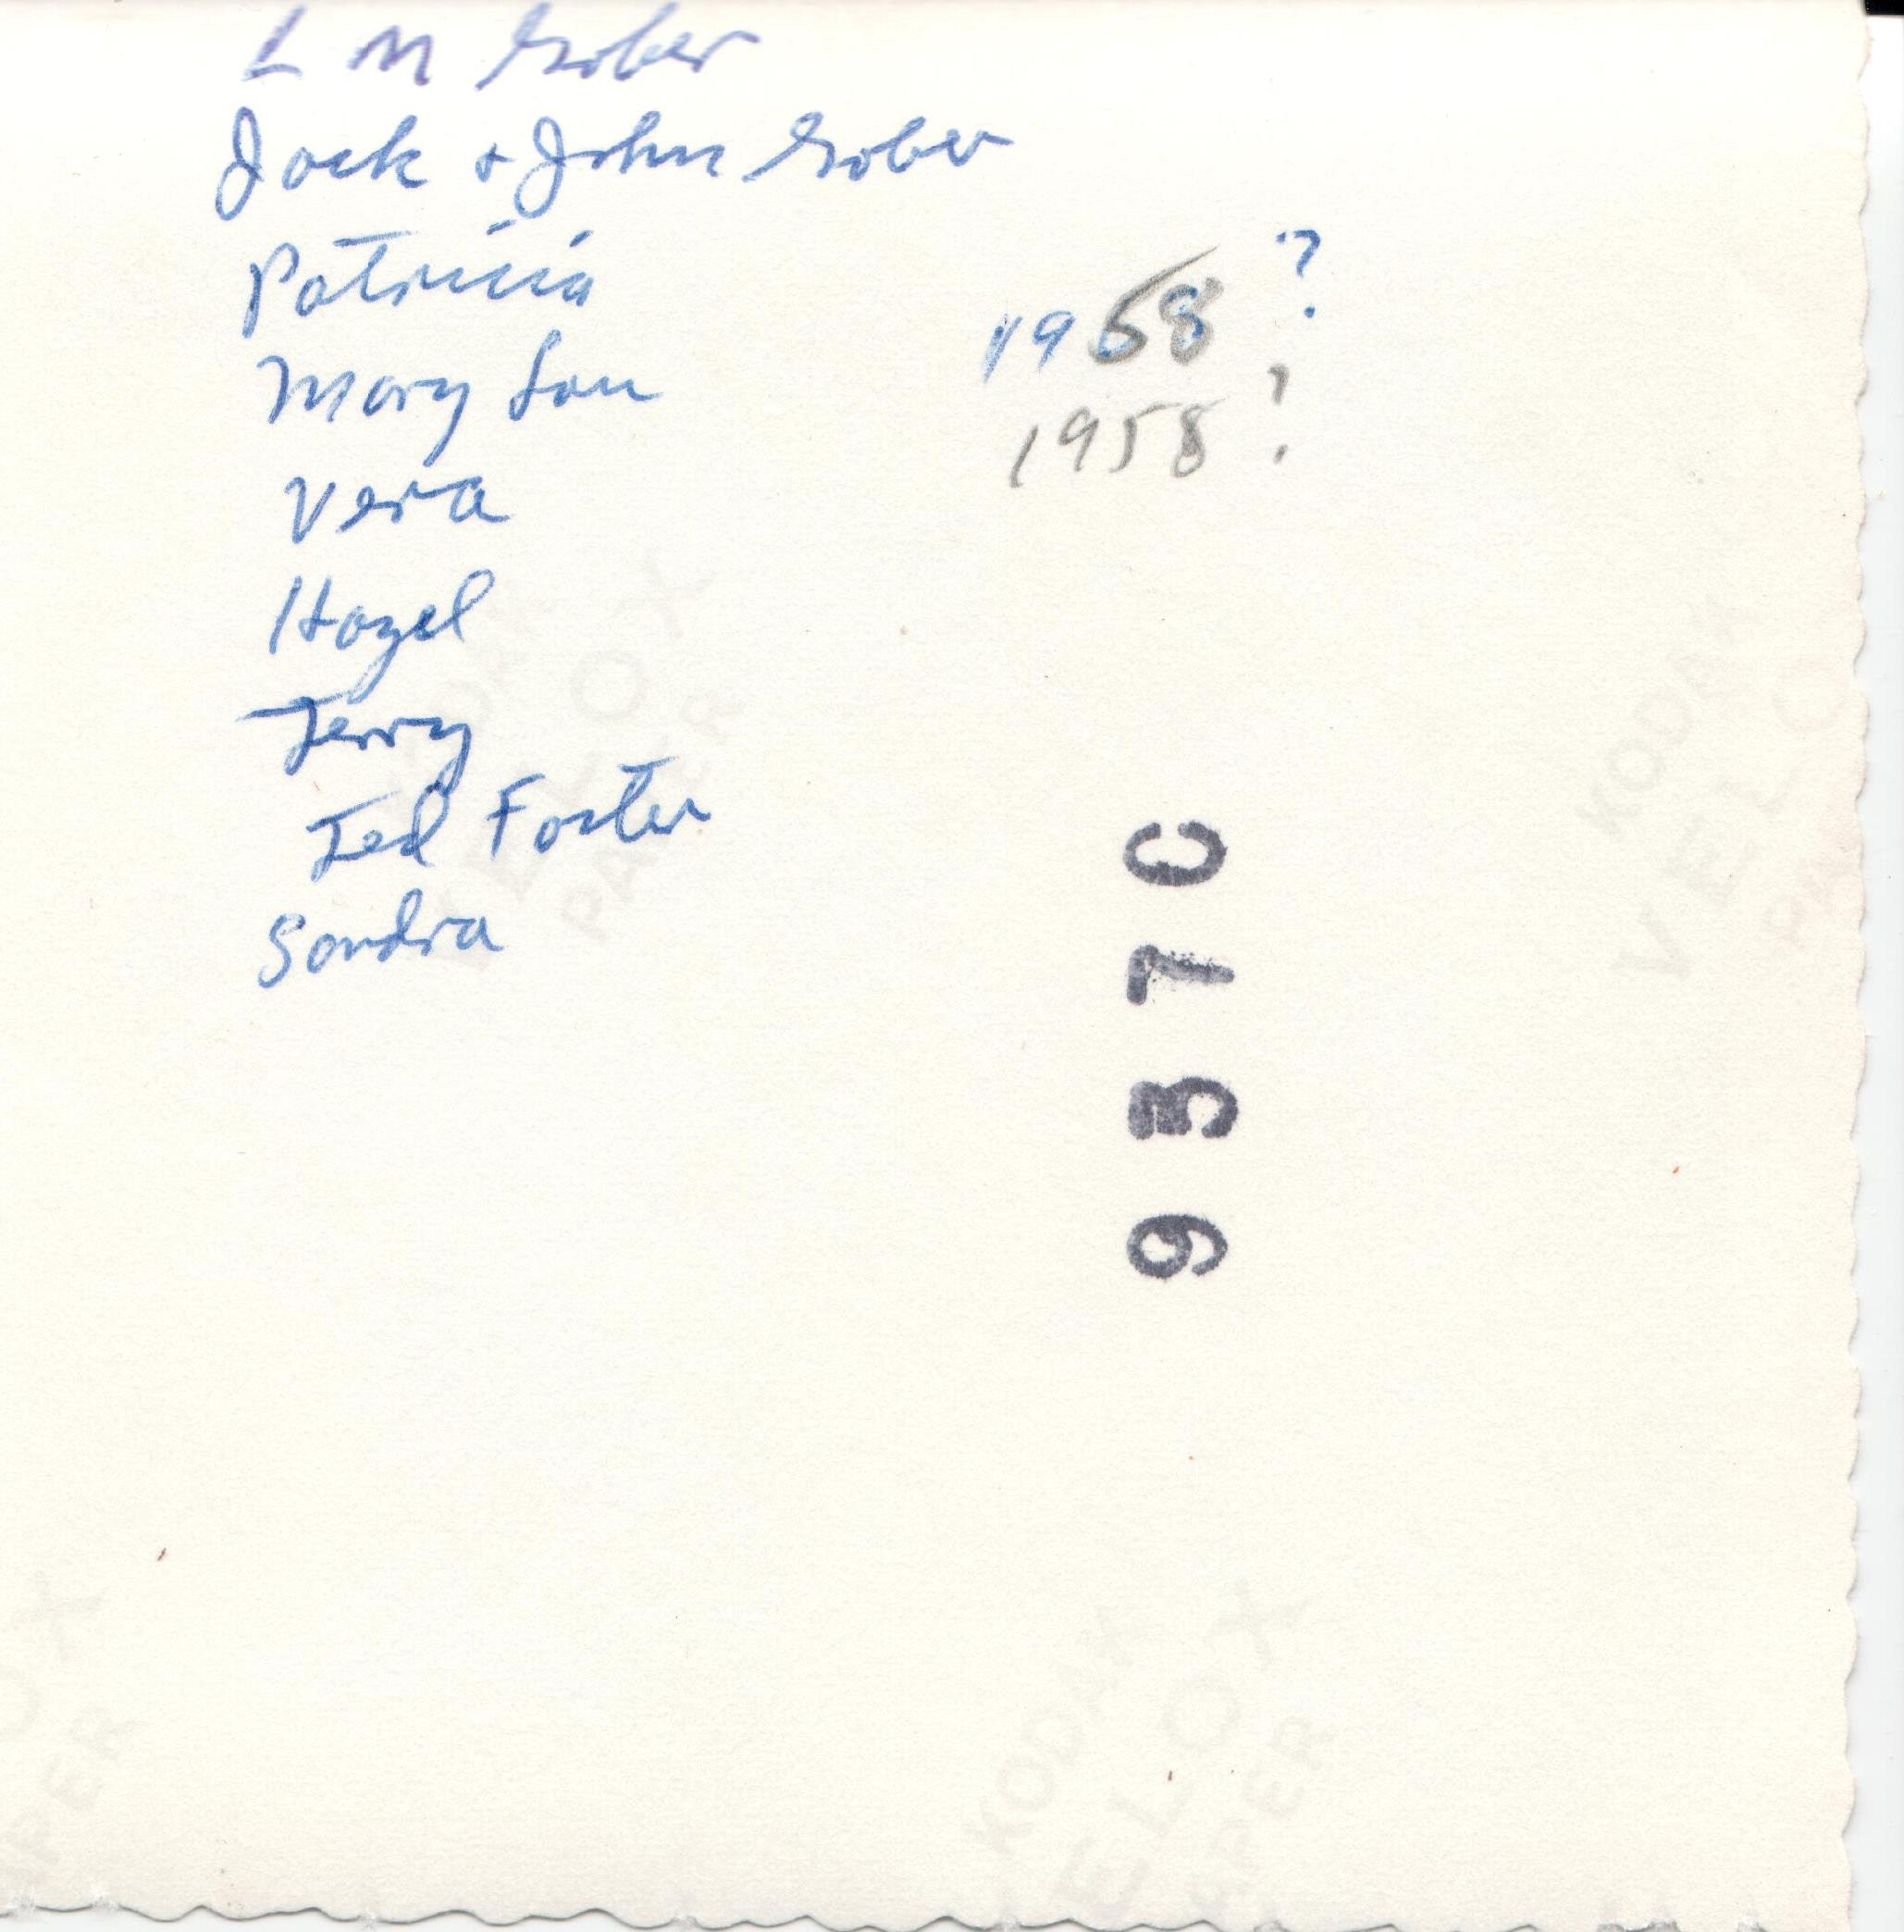 L M Gober
Jack + John Gober
Patricia
Mary Lou
Vera
Hazel
Terry
Ted Foster
Sandra
1958 ?
1958 ?
9 3 7 C
KODAK
VELOX
PAPER
KODAK
VELO
PA
OX
PER
KODAK
ELOX
APER